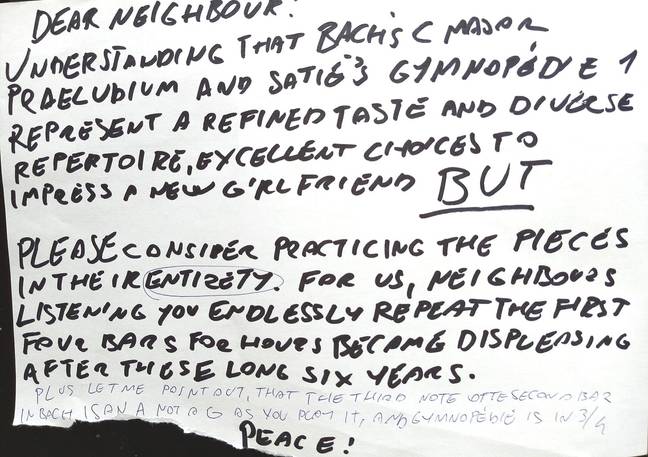 DEAR NEIGHBOUR!
UNDERSTANDING THAT BACH'S C MAJOR
PRAELUDIUM AND SATIÉ'S GYMNOPÉDIE 1
REPRESENT A REFINED TASTE AND DIVERSE
REPERTOIRE, EXCELLENT CHOICES TO
IMPRESS A NEW GIRLFRIEND BUT
PLEASE CONSIDER PRACTICING THE PIECES
IN THEIR ENTIRETY. FOR US, NEIGHBOURS
LISTENING YOU ENDLESSLY REPEAT THE FIRST
FOUR BARS FOR HOURS BECAME DISPLEASING
AFTER THESE LONG SIX YEARS.
PLUS LET ME POINT OUT, THAT THE THIRD NOTE OF THE SECOND BAR
IN BACH IS AN A NOT A G AS YOU PLAY IT, AND GYMNOPÉDIE IS IN 3/4
PEACE!